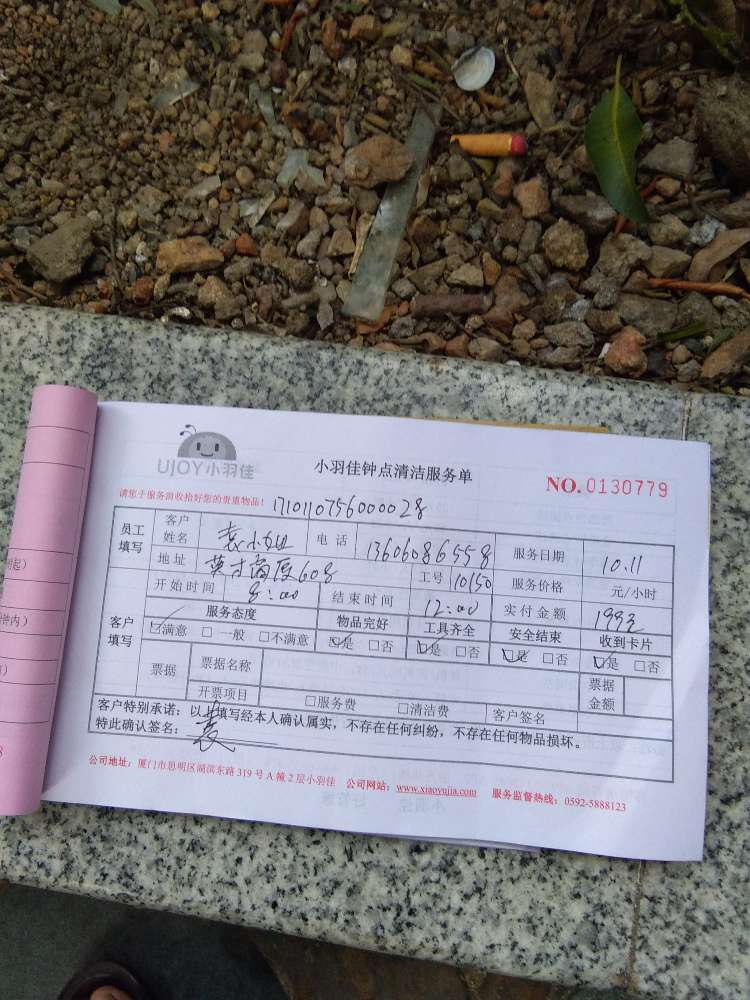 UJOY小羽佳
小羽佳钟点清洁服务单
NO.0130779
请您于服务前收拾好您的贵重物品!
1710110756000028
员工填写 客户姓名 袁小姐 电话 13606086558 服务日期 10.11
地址 英才商厦608 工号 10150 服务价格 元/小时
开始时间 8:00 结束时间 12:00 实付金额 199元
客户填写 服务态度 物品完好 工具齐全 安全结束 收到卡片
☑满意 □一般 □不满意 ☑是 □否 ☑是 □否 ☑是 □否 ☑是 □否
票据 票据名称 票据金额
开票项目 □服务费 □清洁费 客户签名
客户特别承诺:以上填写经本人确认属实,不存在任何纠纷,不存在任何物品损坏。
特此确认签名: 袁
公司地址:厦门市思明区湖滨东路319号A幢2层小羽佳 公司网站:www.xiaoyujia.com 服务监督热线:0592-5888123